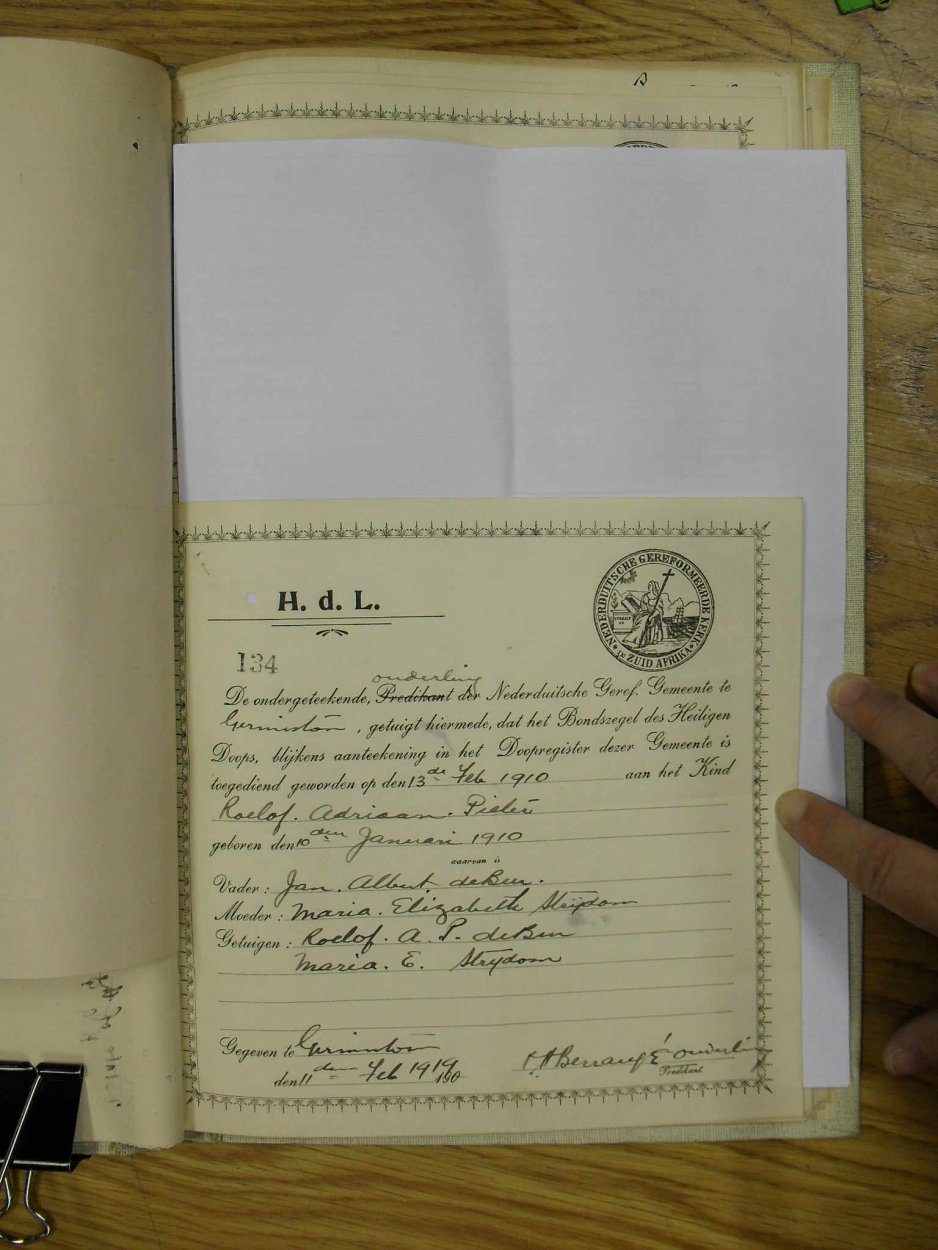 B
H. d. L.
NEDERDUITSCHE GEREFORMEERDE KERK
IN ZUID AFRIKA
134
ouderling
De ondergeteekende, Predikant der Nederduitsche Geref. Gemeente te
Germiston, getuigt hiermede, dat het Bondszegel des Heiligen
Doops, blijkens aanteekening in het Doopregister dezer Gemeente is
toegediend geworden op den 13de Feb 1910 aan het Kind
Roelof. Adriaan. Pieter
geboren den 10den Januari 1910
waarvan is
Vader: Jan. Albert. de Beer.
Moeder: Maria. Elizabeth Strydom
Getuigen: Roelof. A. P. de Beer
Maria. E. Strydom
Gegeven te Germiston
den 11den Feb 1919 190
Berrangé ouderling
Predikant.